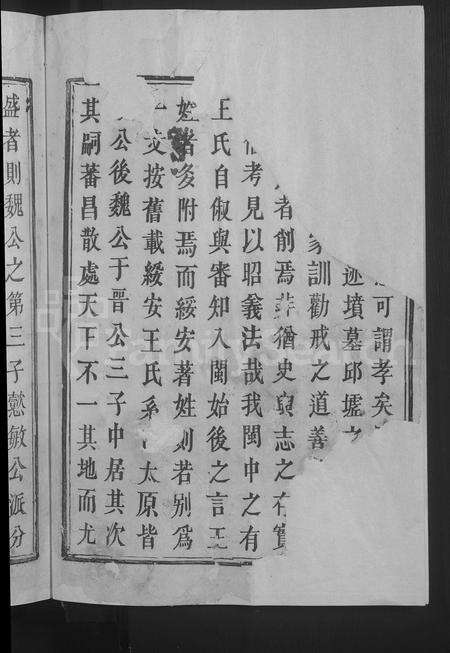 可謂孝矣
迹墳墓邱墟之
家訓勸戒之道善
者削焉非猶史臭志之存實
考見以昭義法哉我閩中之有
王氏自俶與審知入閩始後之言王
姓者多附焉而綏安著姓則若別為
一支按舊載綏安王氏系 太原皆
公後魏公于晋公三子中居其次
其嗣蕃昌散處天下不一其地而尤
盛者則魏公之第三子懿敏公派分